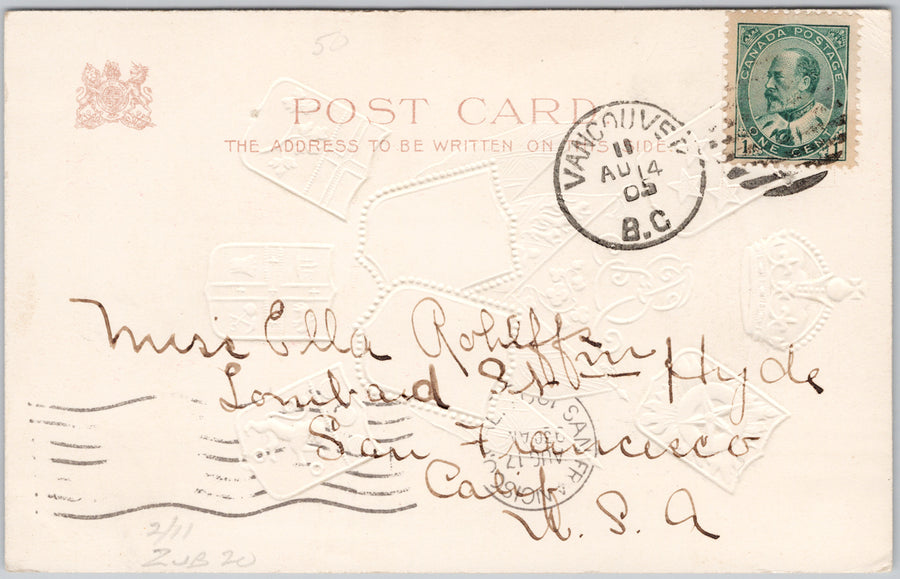 50
CANADA POSTAGE
1 ONE CENT 1
POST CARD
THE ADDRESS TO BE WRITTEN ON THIS SIDE
VANCOUVER
11
AU 14
05
B.C
Miss Ella Rohlffs
Lombard St nr Hyde
SAN FRANCISCO
AUG 17
San Francisco
Calif
U. S. A
2/11
ZUB 20